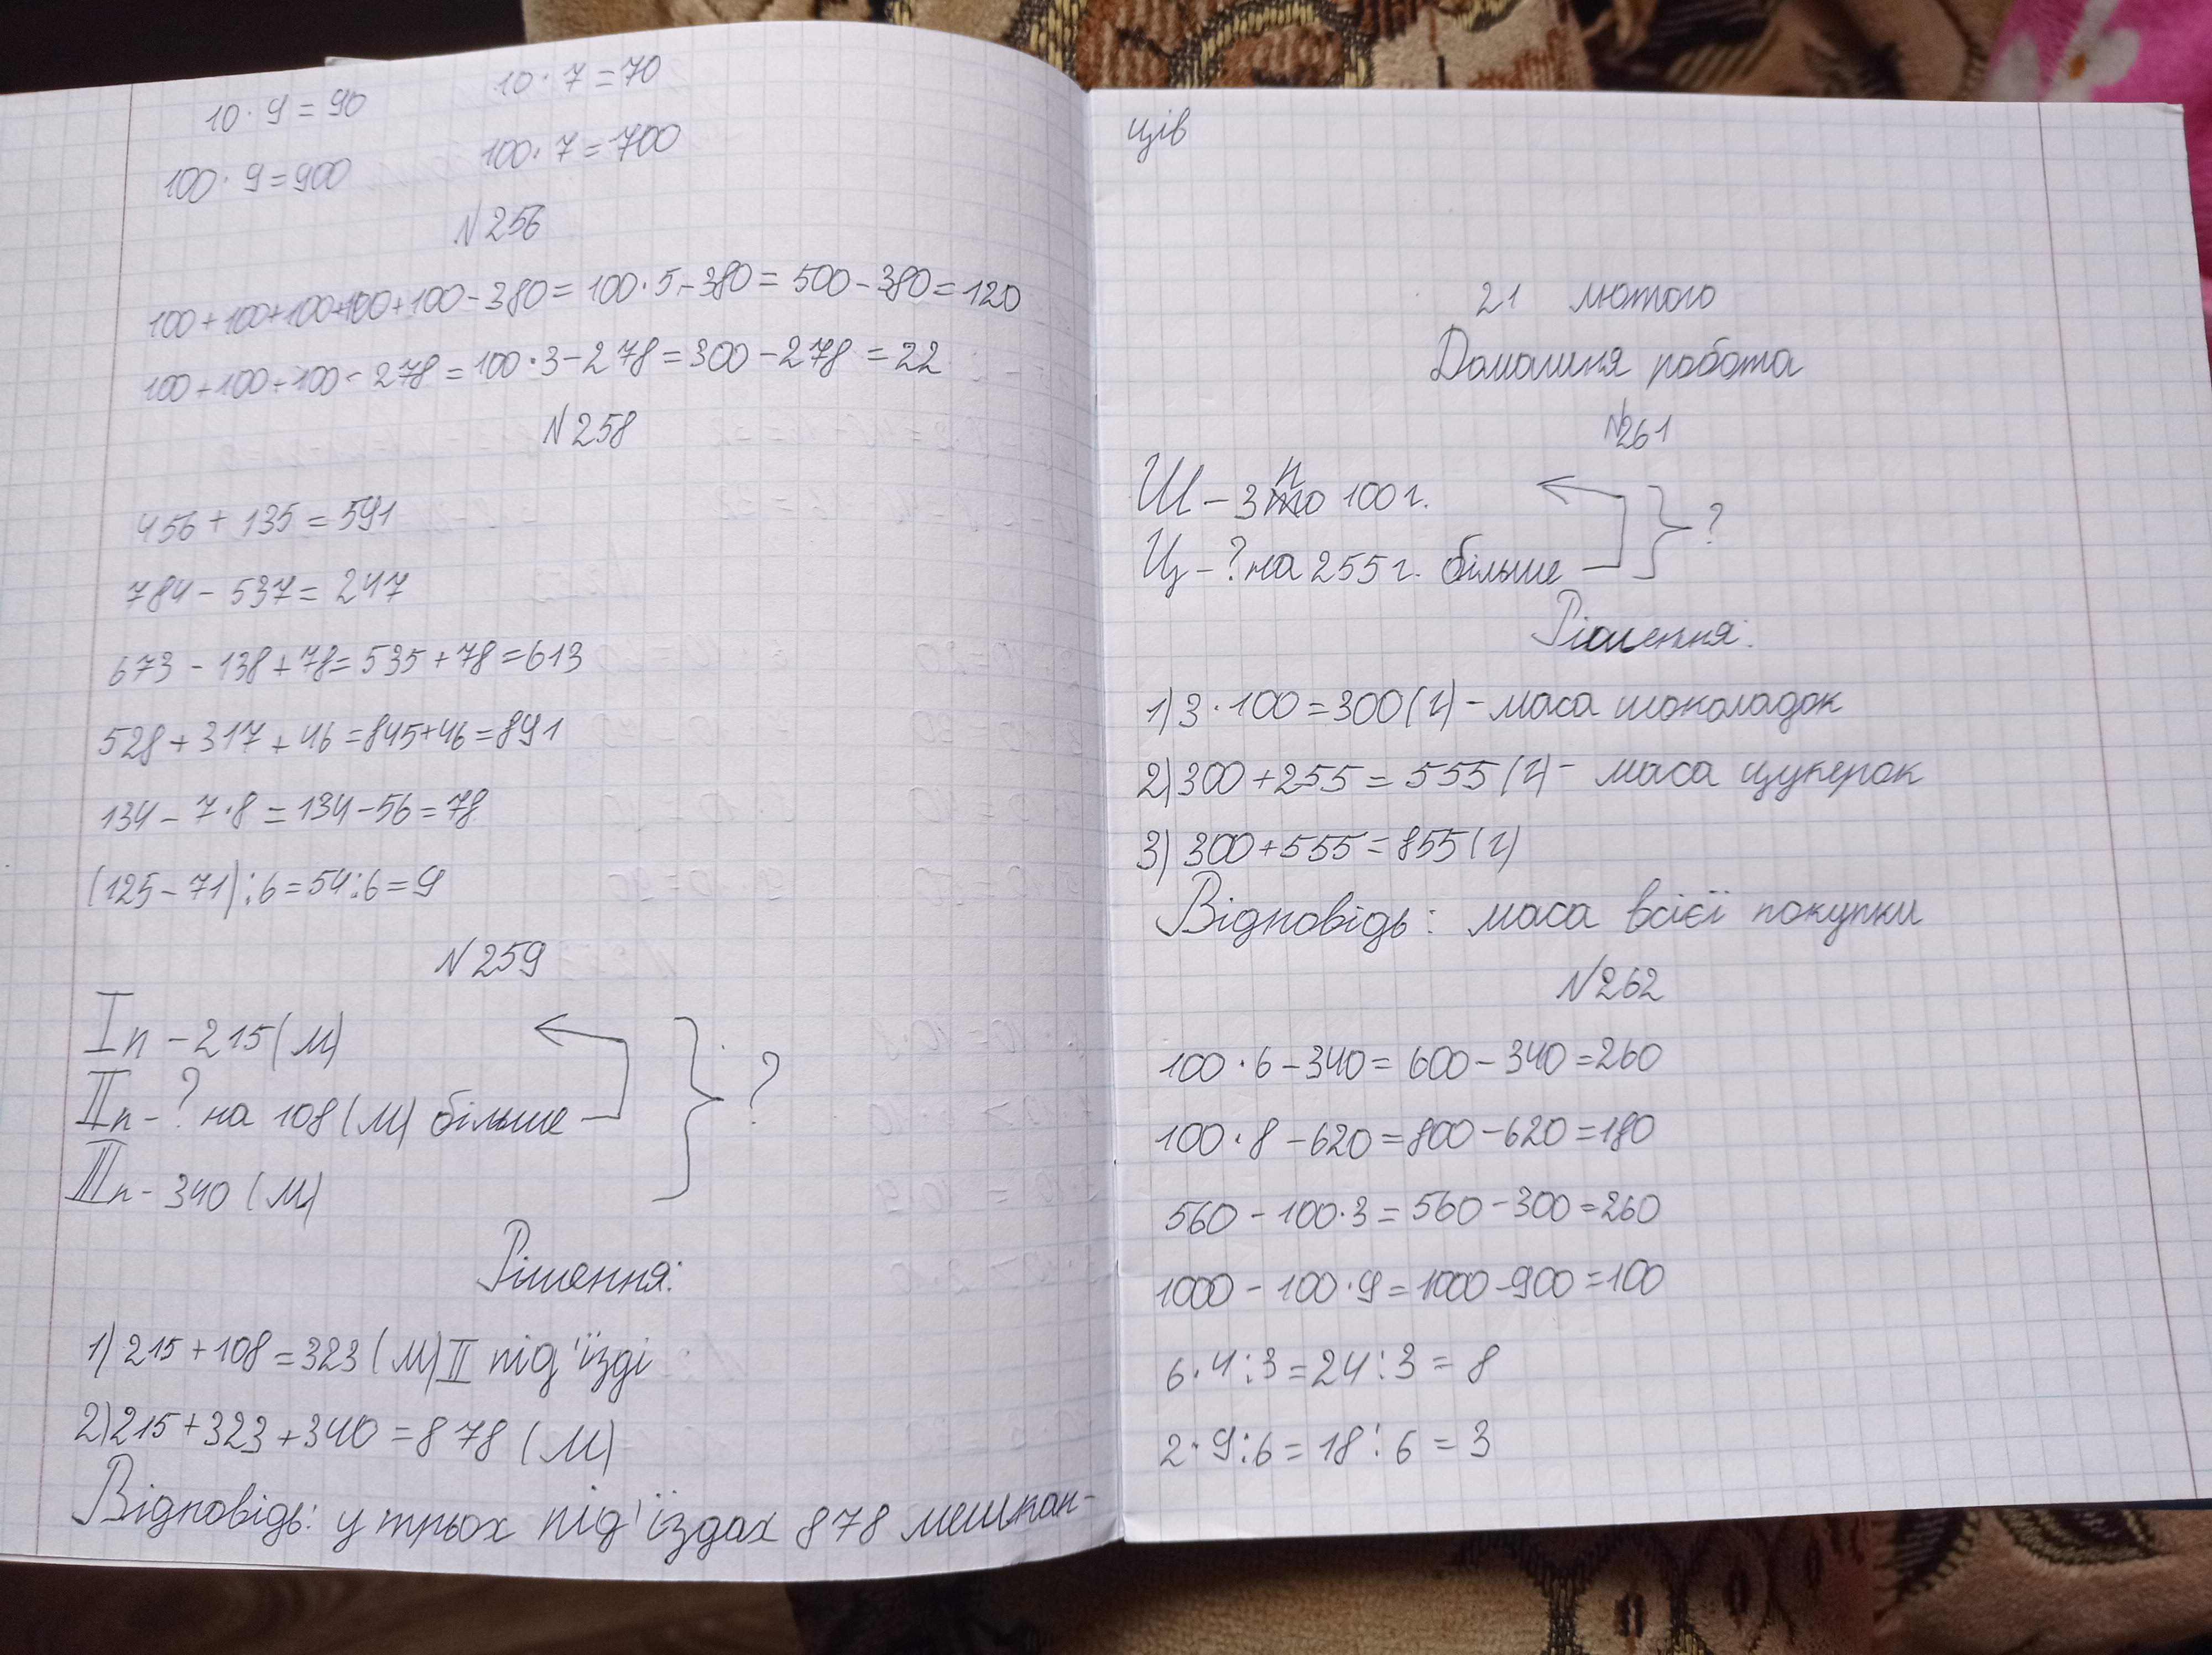 10 · 9 = 90 10 · 7 = 70
100 · 9 = 900 100 · 7 = 700
N 256
100 + 100 + 100 + 100 + 100 - 380 = 100 · 5 - 380 = 500 - 380 = 120
100 + 100 + 100 - 278 = 100 · 3 - 278 = 300 - 278 = 22
N 258
456 + 135 = 591
784 - 537 = 247
673 - 138 + 78 = 535 + 78 = 613
528 + 317 + 46 = 845 + 46 = 891
134 - 7 · 8 = 134 - 56 = 78
(125 - 71) : 6 = 54 : 6 = 9
N 259
I п - 215 (м)
II п - ? на 108 (м) більше
III п - 340 (м)
?
Рішення:
1) 215 + 108 = 323 (м) II під'їзді
2) 215 + 323 + 340 = 878 (м)
Відповідь: у трьох під'їздах 878 мешкан-
ців
21 лютого
Домашня робота
N261
Ш - 3 по 100 г.
Ц - ? на 255 г. більше
?
Рішення:
1) 3 · 100 = 300 (г) - маса шоколадок
2) 300 + 255 = 555 (г) - маса цукерок
3) 300 + 555 = 855 (г)
Відповідь: маса всієї покупки
N 262
100 · 6 - 340 = 600 - 340 = 260
100 · 8 - 620 = 800 - 620 = 180
560 - 100 · 3 = 560 - 300 = 260
1000 - 100 · 9 = 1000 - 900 = 100
6 · 4 : 3 = 24 : 3 = 8
2 · 9 : 6 = 18 : 6 = 3